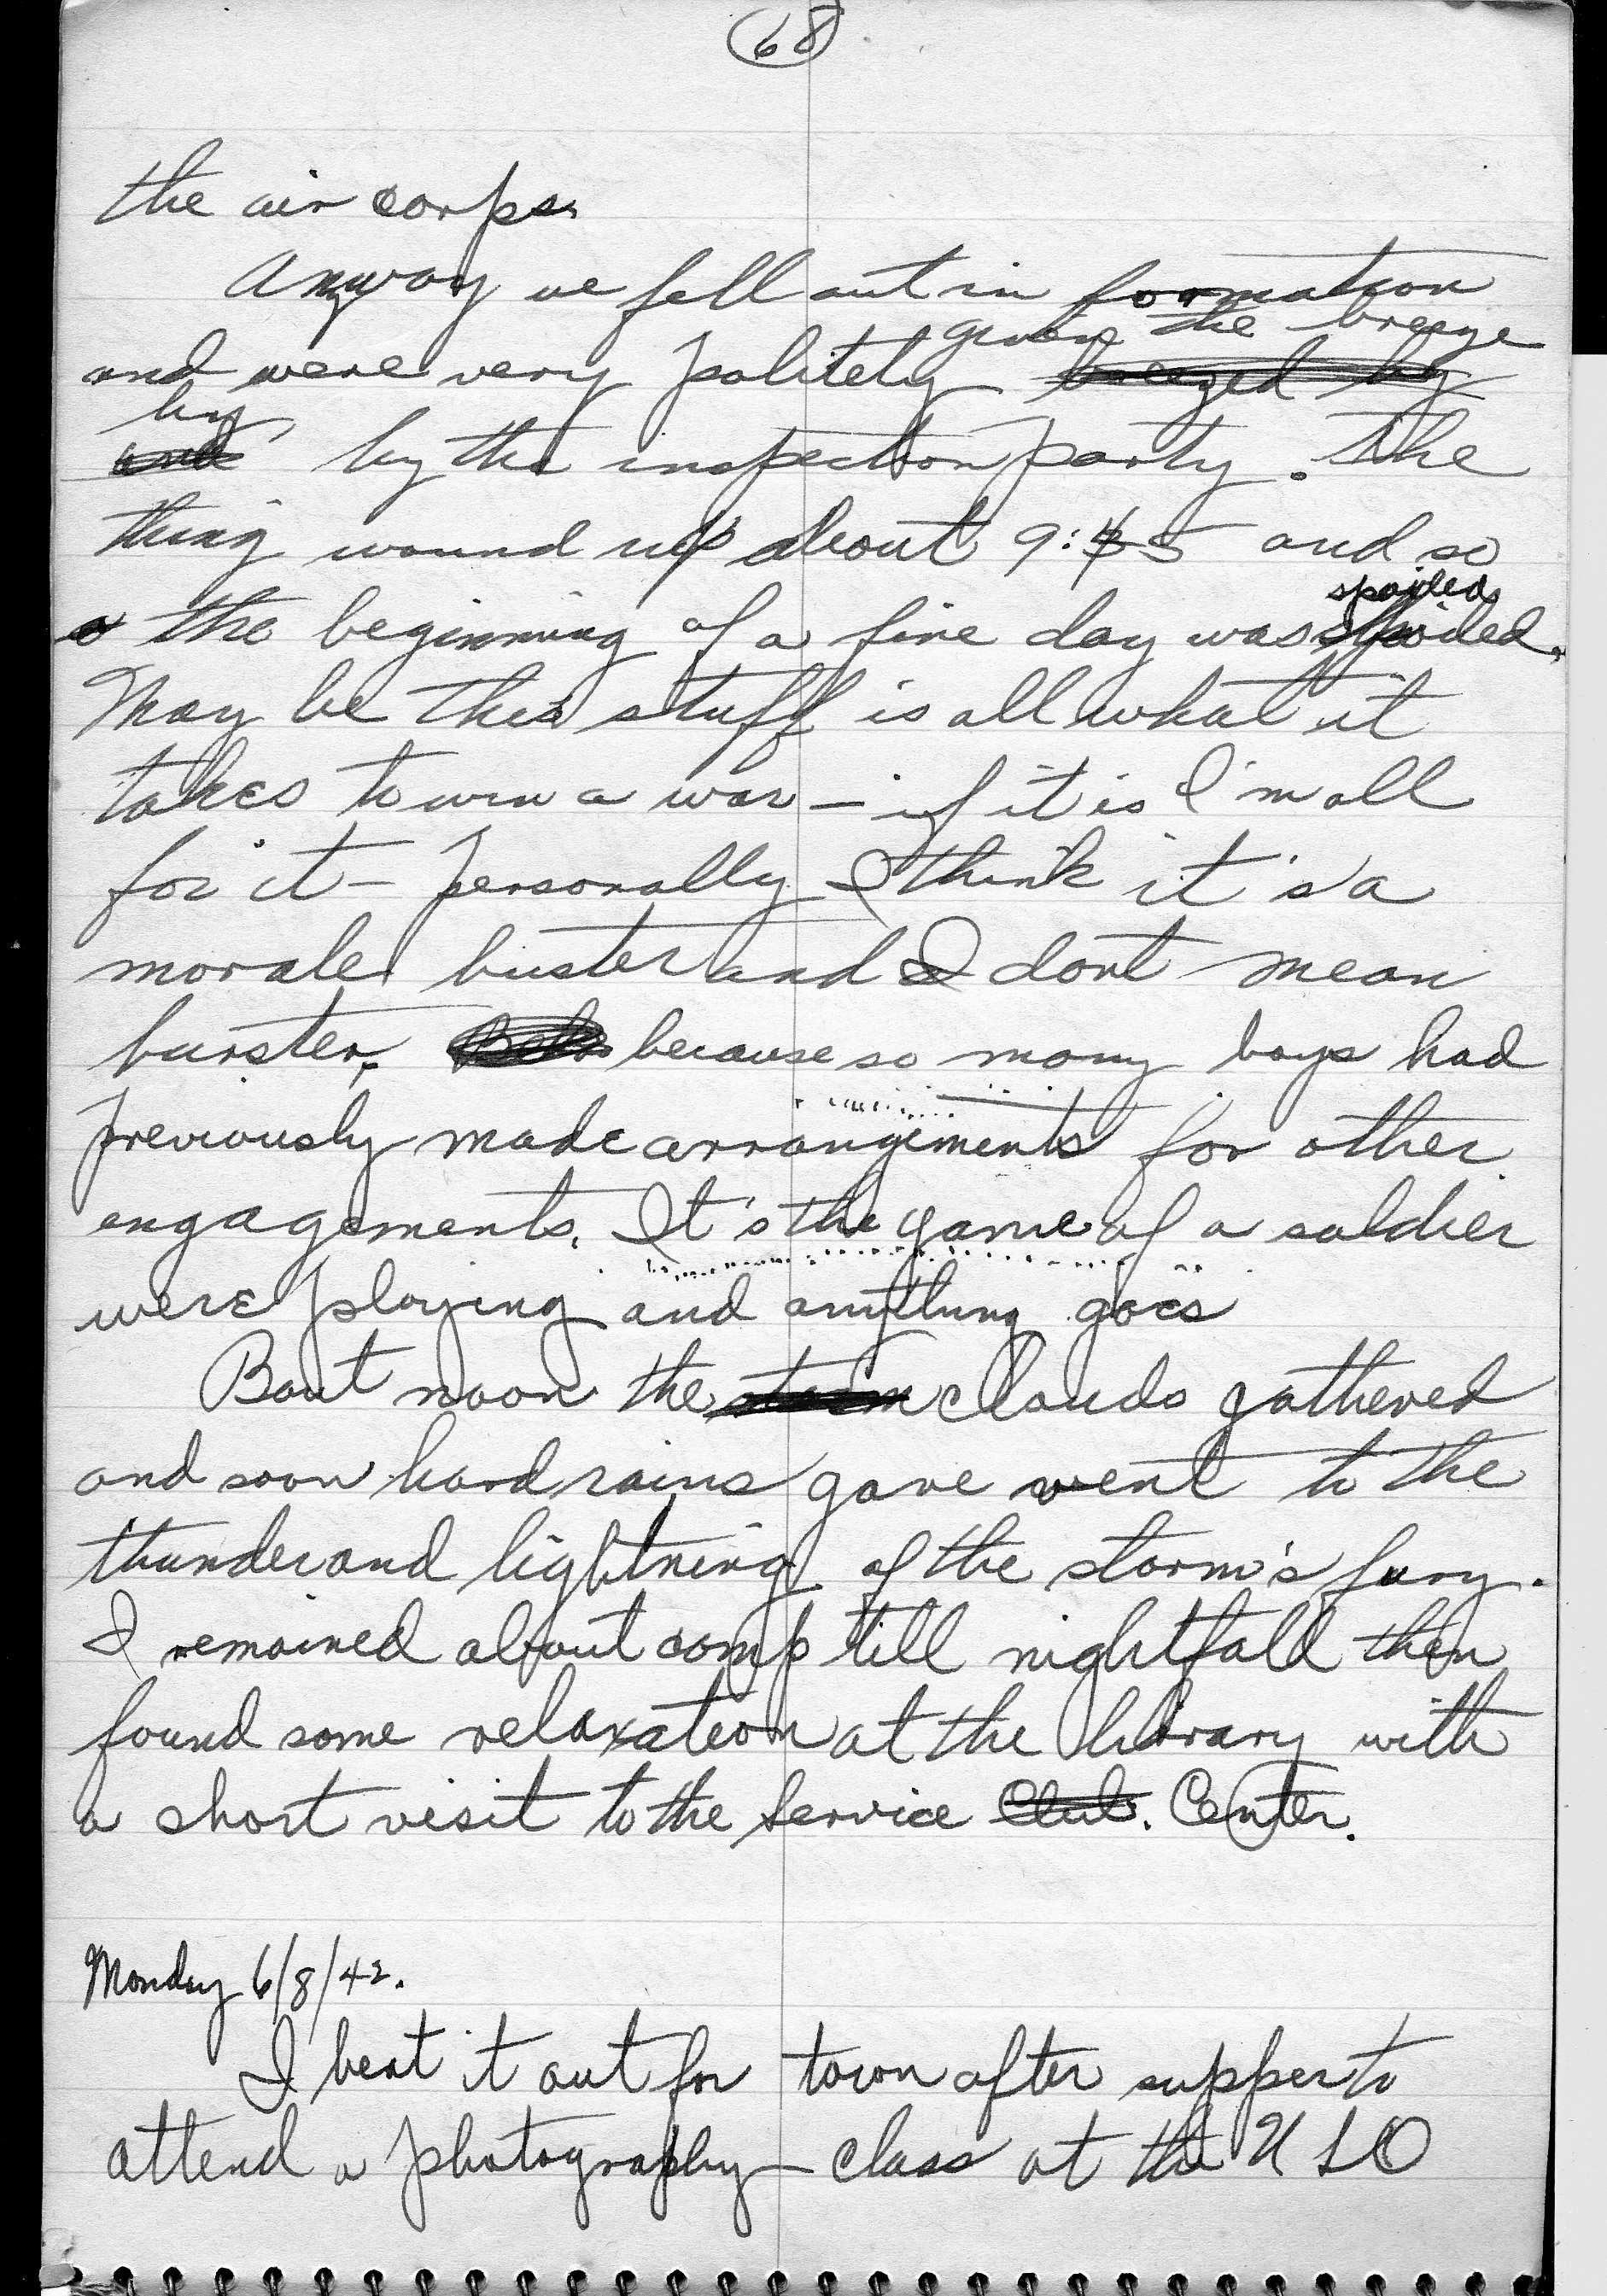 68
the air corps.
Anyway we fell out in formation
given the breeze
and were very politely breezed by
by
and by the inspection party. The
thing wound up about 9:45 and so
the beginning of a fine day was spoiled
spoiled.
May be this stuff is all what it
takes to win a war – if it is I'm all
for it – Personally I think it's a
morale buster and I dont mean
burster, because so many boys had
previously made arrangements for other
engagements. It's the game of a soldier
were playing and anything goes
Bout noon the storm clouds gathered
and soon hard rains gave vent to the
thunder and lightning of the storm's fury.
I remained about camp till nightfall then
found some relaxation at the library with
a short visit to the Service Club. Center.
Monday 6/8/42.
I beat it out for town after supper to
attend a photography – class at the USO